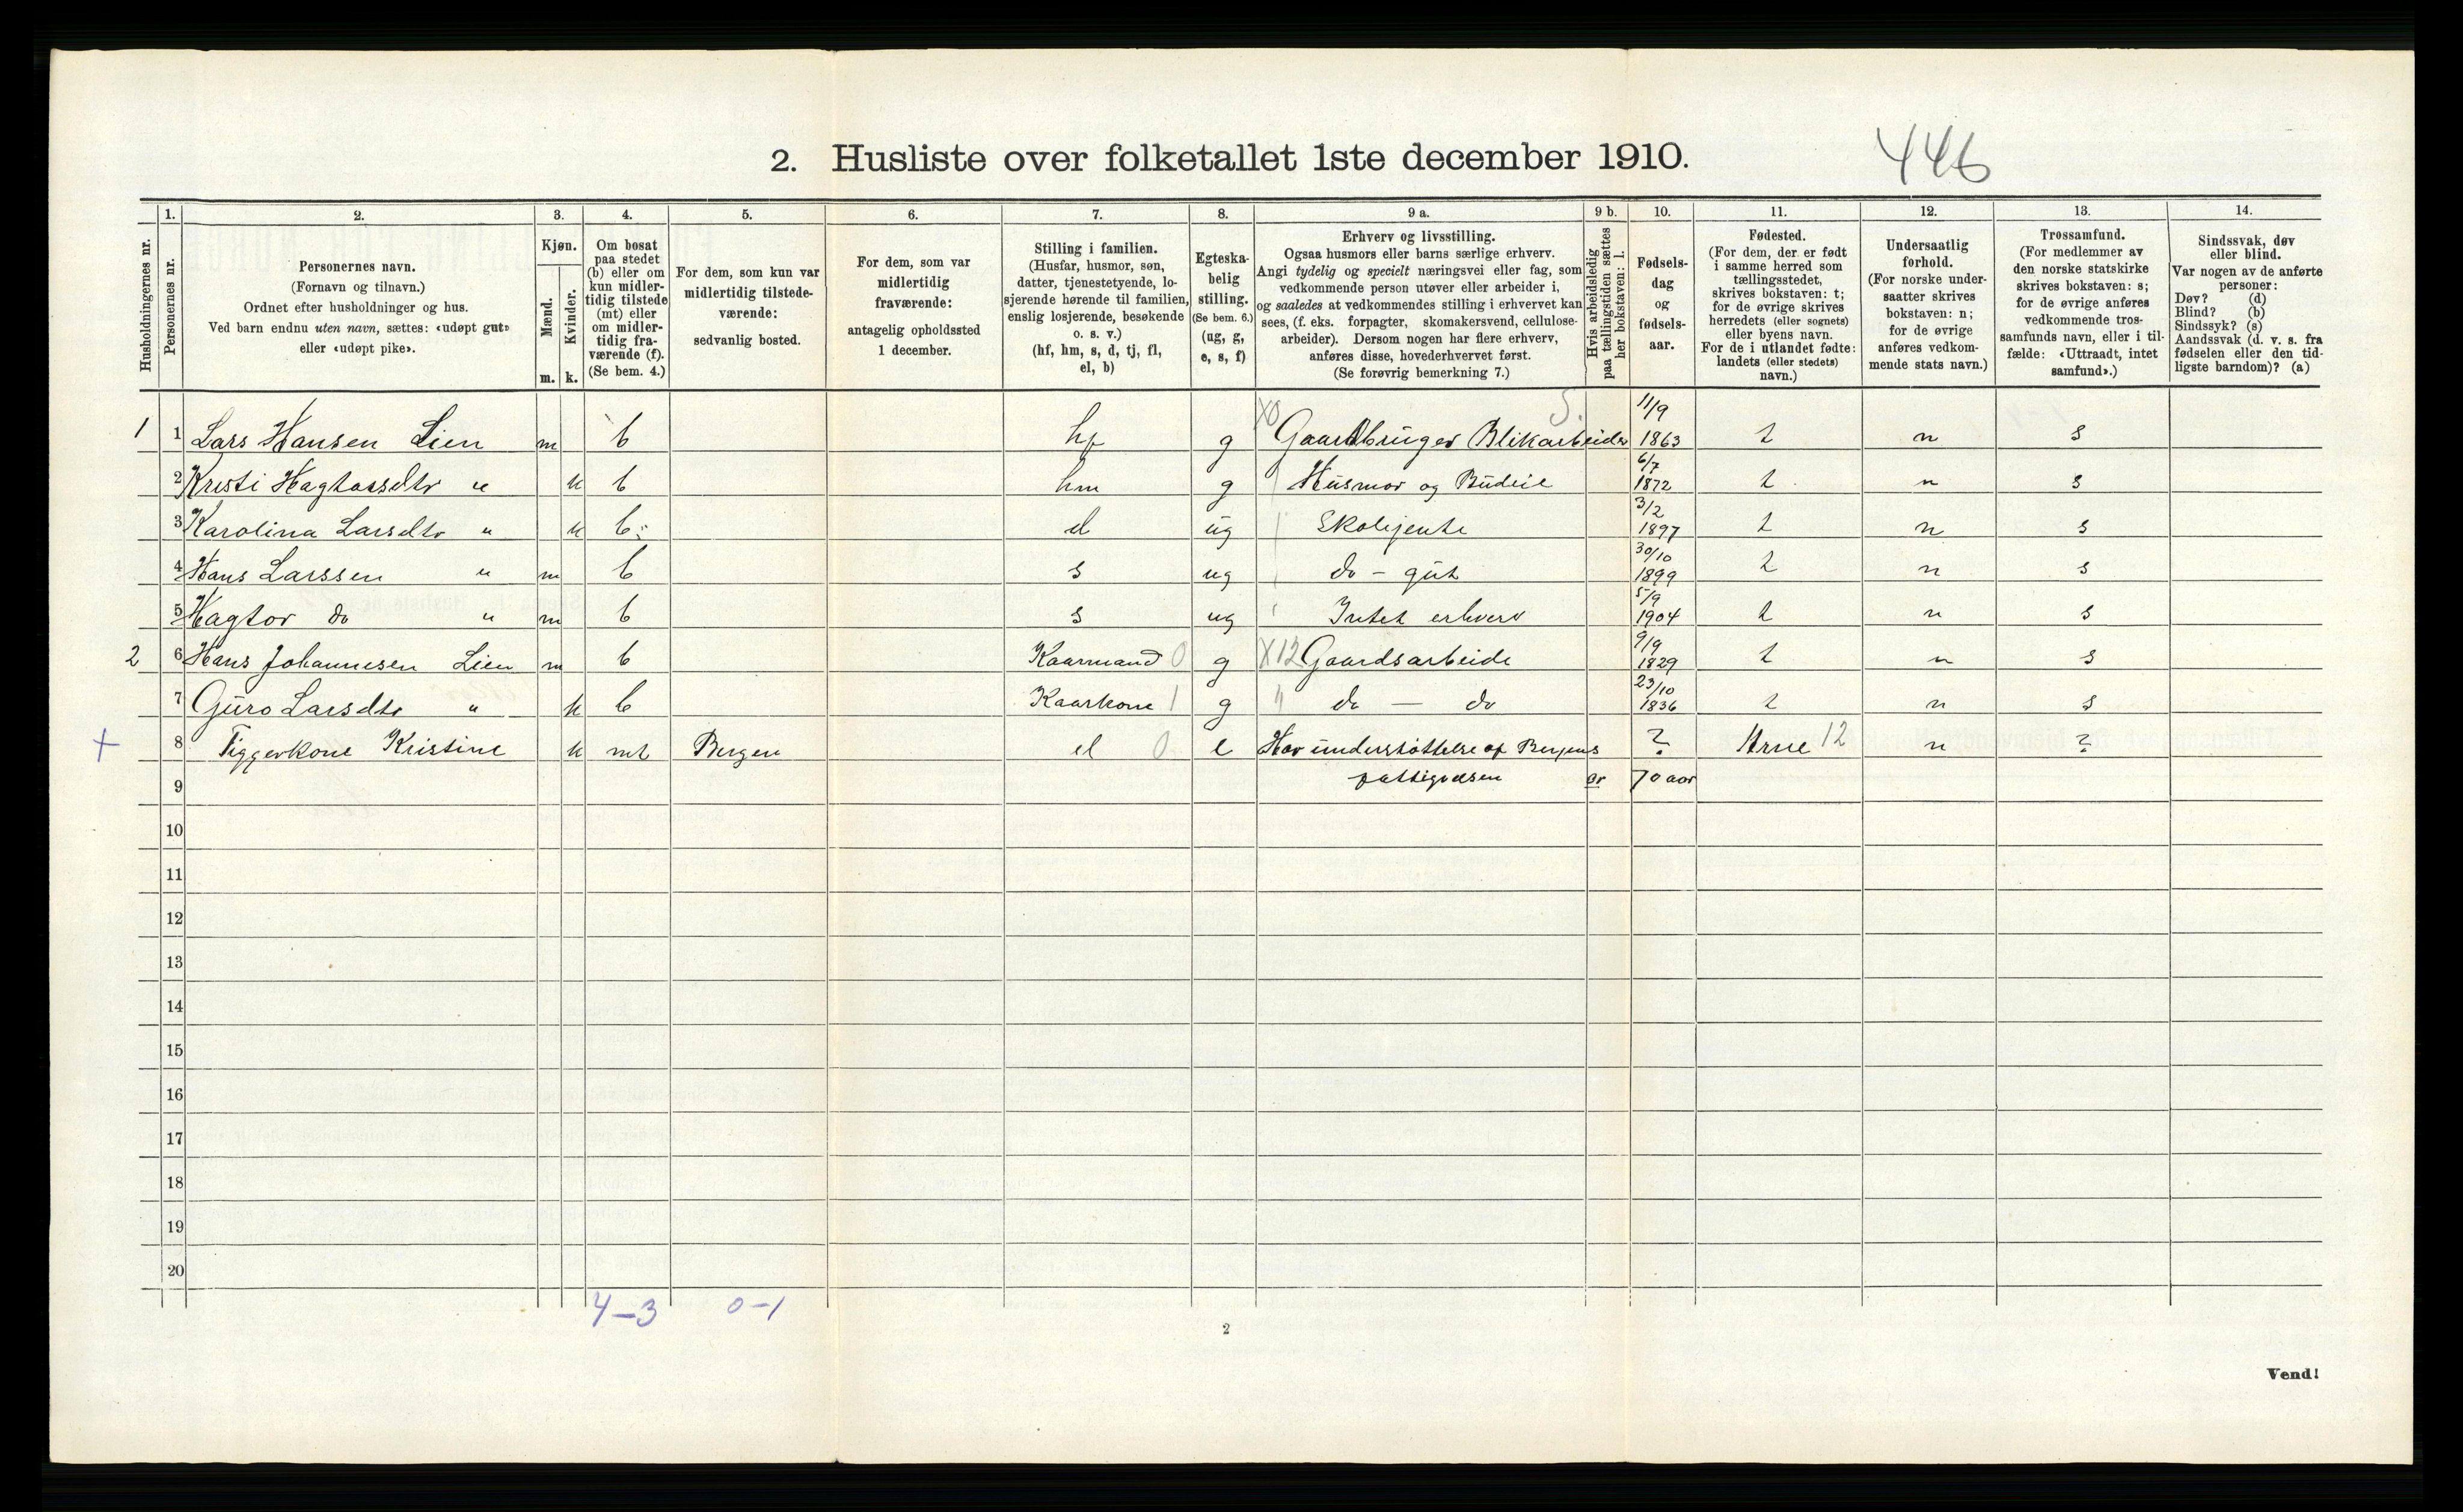 2. Husliste over folketallet 1ste december 1910.
446
1. 2. 3. 4. 5. 6. 7. 8. 9 a. 9 b. 10. 11. 12. 13. 14.
Husholdningernes nr.
Personernes nr.
Personernes navn.
(Fornavn og tilnavn.)
Ordnet efter husholdninger og hus.
Ved barn endnu uten navn, sættes: «udøpt gut»
eller «udøpt pike».
Kjøn.
Mænd.
Kvinder.
m. k.
Om bosat
paa stedet
(b) eller om
kun midler-
tidig tilstede
(mt) eller
om midler-
tidig fra-
værende (f).
(Se bem. 4.)
For dem, som kun var
midlertidig tilstede-
værende:
sedvanlig bosted.
For dem, som var
midlertidig
fraværende:
antagelig opholdssted
1 december.
Stilling i familien.
(Husfar, husmor, søn,
datter, tjenestetyende, lo-
sjerende hørende til familien,
enslig losjerende, besøkende
o. s. v.)
(hf, hm, s, d, tj, fl,
el, b)
Egteska-
belig
stilling.
(Se bem. 6.)
(ug, g,
e, s, f)
Erhverv og livsstilling.
Ogsaa husmors eller barns særlige erhverv.
Angi tydelig og specielt næringsvei eller fag, som
vedkommende person utøver eller arbeider i,
og saaledes at vedkommendes stilling i erhvervet kan
sees, (f. eks. forpagter, skomakersvend, cellulose-
arbeider). Dersom nogen har flere erhverv,
anføres disse, hovederhvervet først.
(Se forøvrig bemerkning 7.)
Hvis arbeidsledig
paa tællingstiden sættes
her bokstaven: l.
Fødsels-
dag
og
fødsels-
aar.
Fødested.
(For dem, der er født
i samme herred som
tællingsstedet,
skrives bokstaven: t;
for de øvrige skrives
herredets (eller sognets)
eller byens navn.
For de i utlandet fødte:
landets (eller stedets)
navn.)
Undersaatlig
forhold.
(For norske under-
saatter skrives
bokstaven: n;
for de øvrige
anføres vedkom-
mende stats navn.)
Trossamfund.
(For medlemmer av
den norske statskirke
skrives bokstaven: s;
for de øvrige anføres
vedkommende tros-
samfunds navn, eller i til-
fælde: «Uttraadt, intet
samfund».)
Sindssvak, døv
eller blind.
Var nogen av de anførte
personer:
Døv? (d)
Blind? (b)
Sindssyk? (s)
Aandssvak (d. v. s. fra
fødselen eller den tid-
ligste barndom)? (a)
1 1 Lars Hansen Lien m b hf g X0 Gaardbruger Blikarbeider S. 11/9 1863 t n s
2 Kristi Hagtorsdtr " k b hm g Husmor og Budeie 6/7 1872 t n s
3 Karolina Larsdtr " k b d ug Skolejente 3/2 1897 t n s
4 Hans Larssen " m b s ug do - gut 30/10 1899 t n s
5 Hagtor do " m b s ug Intet erhverv 5/9 1904 t n s
2 6 Hans Johannesen Lien m b Kaarmand 0 g X12 Gaardsarbeide 9/9 1829 t n s
7 Guro Larsdtr " k b Kaarkone 1 g " do — do 23/10 1836 t n s
+ 8 Tiggerkone Kristine k mt Bergen el 0 e Har understøttelse af Bergens ? Arne 12 n ?
9 fattigvæsen er 70 aar
10
11
12
13
14
15
16
17
18
19
20
4-3 0-1
2
Vend!